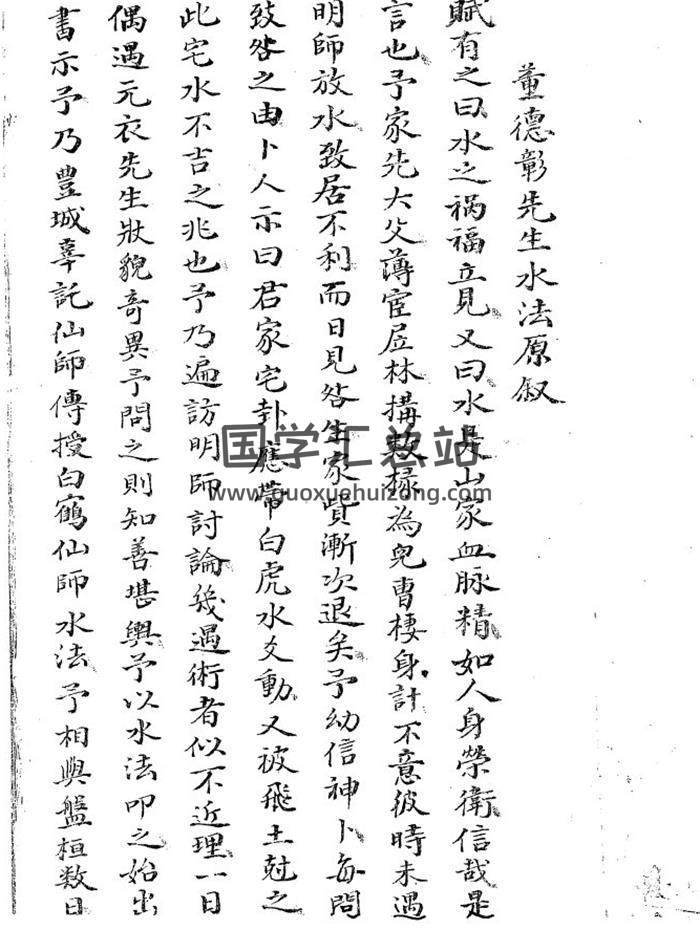 董德彰先生水法原叙
賦有之曰水之祸福立見又曰水是山家血脉精如人身榮衛信哉是
言也予家先大父薄宦居林搆数椽為兒曹棲身計不意彼時未遇
明師放水致居不利而日見咎生家貲漸次退矣予幼信神卜每問
致咎之由卜人示曰君家宅卦應帶白虎水爻動又被飛土尅之
此宅水不吉之兆也予乃遍訪明師討論幾遇術者似不近理一日
偶遇元衣先生狀貌奇異予問之則知善堪輿予以水法叩之始出
書示予乃豊城辜託仙師傳授白鶴仙師水法予相與盤桓数日
国学汇总站
www.guoxuehuizong.com